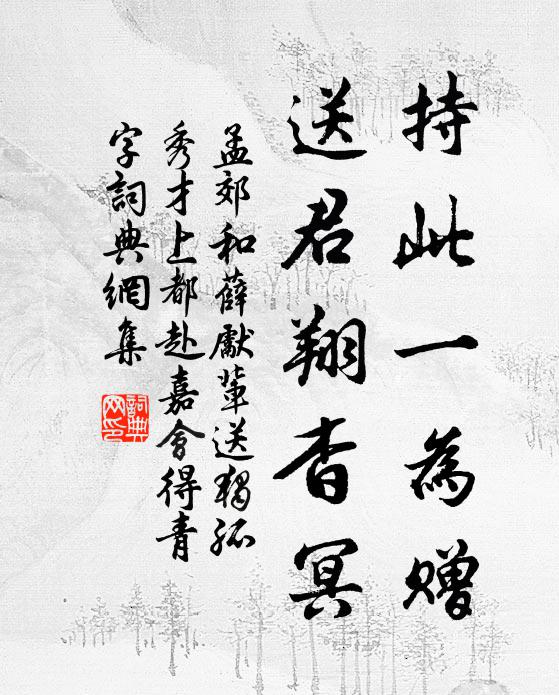 持此一為赠
送君翔杳冥
孟郊和薛獻輩送獨孤
秀才上都赴嘉會得青
字詞典網集
詞典
网印